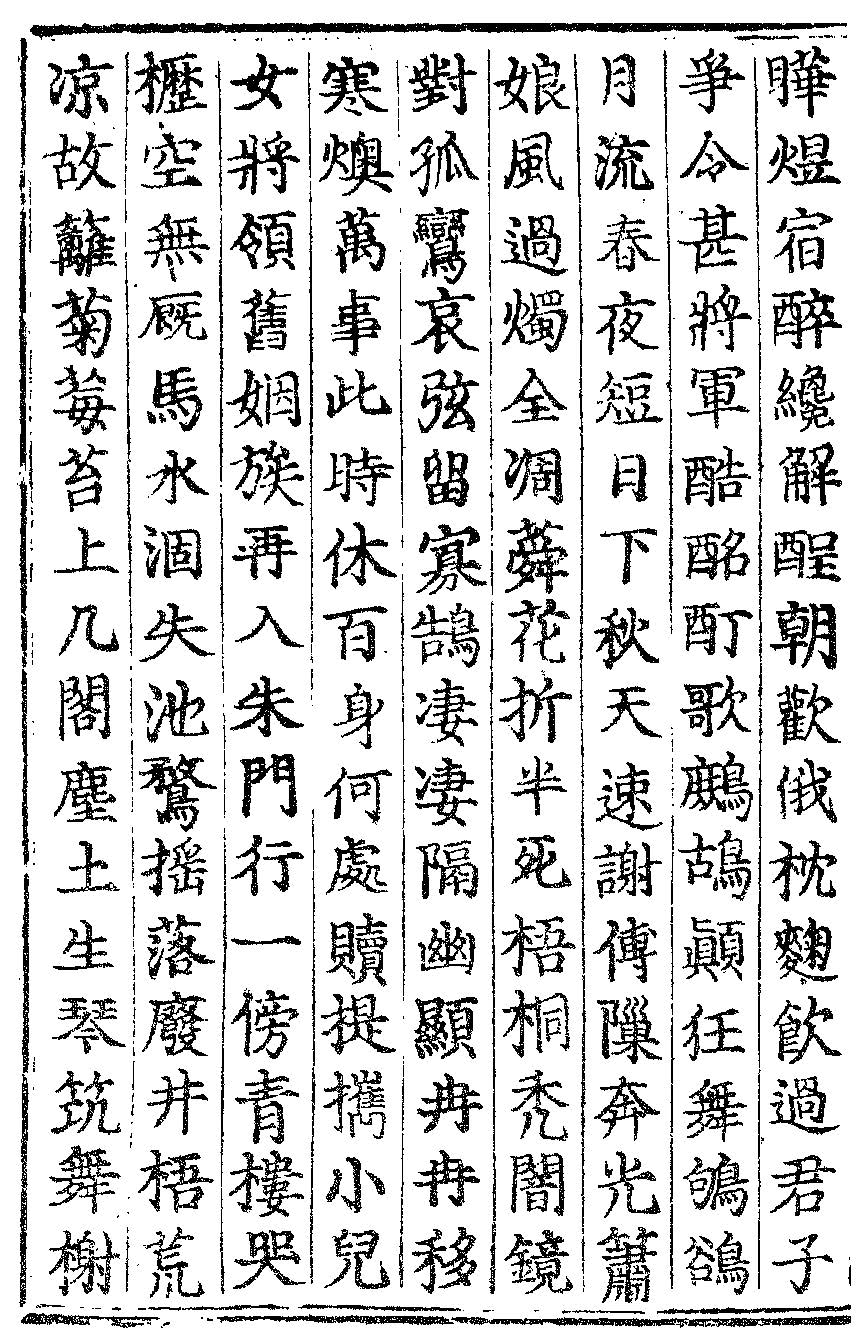 曄煜宿醉纔解酲朝歡俄枕麴飲過君子
爭令甚將軍酷酩酊歌鷓鴣顚狂舞鴝鵒
月流春夜短日下秋天速謝傅隟奔光簫
娘風過燭全凋蕣花折半死梧桐禿闇鏡
對孤鸞哀弦留寡鵠凄凄隔幽顯冉冉移
寒燠萬事此時休百身何處贖提攜小兒
女將領舊姻族再入朱門行一傍青樓哭
櫪空無廐馬水涸失池鶩摇落廢井梧荒
凉故籬菊莓苔上几閣塵土生琴筑舞榭